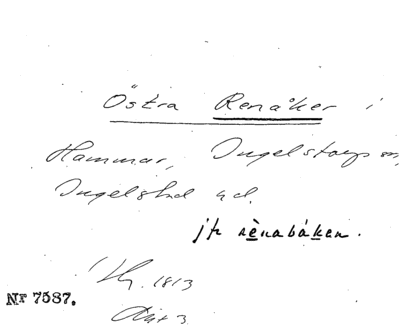 Östra Renåker i
Hammar, Ingelstorps sn,
Ingelstad hd.
jfr rènabåken.
1813
Akt 3
Nr 7587.